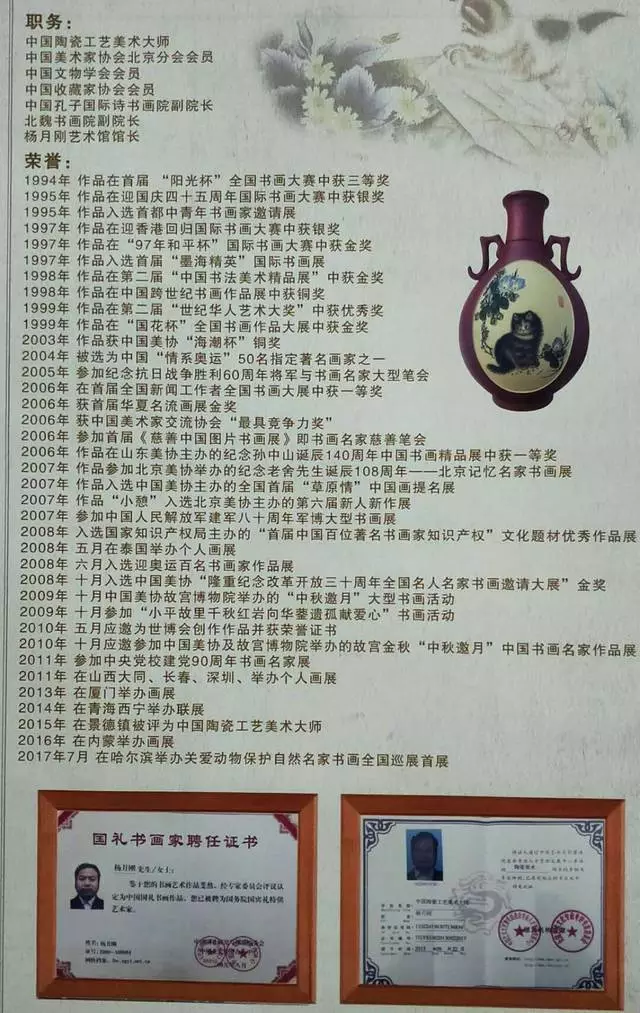 职务：
中国陶瓷工艺美术大师
中国美术家协会北京分会会员
中国文物学会会员
中国收藏家协会会员
中国孔子国际诗书画院副院长
北魏书画院副院长
杨月刚艺术馆馆长
荣誉：
1994年 作品在首届 “阳光杯”全国书画大赛中获三等奖
1995年 作品在迎国庆四十五周年国际书画大赛中获银奖
1995年 作品入选首都中青年书画家邀请展
1997年 作品在迎香港回归国际书画大赛中获银奖
1997年 作品在“97年和平杯”国际书画大赛中获金奖
1997年 作品入选首届“墨海精英”国际书画展
1998年 作品在第二届“中国书法美术精品展”中获金奖
1998年 作品在中国跨世纪书画作品展中获铜奖
1999年 作品在第二届“世纪华人艺术大奖”中获优秀奖
1999年 作品在“国花杯”全国书画作品大展中获金奖
2003年 作品获中国美协“海潮杯”铜奖
2004年 被选为中国“情系奥运”50名指定著名画家之一
2005年 参加纪念抗日战争胜利60周年将军与书画名家大型笔会
2006年 在首届全国新闻工作者全国书画大展中获一等奖
2006年 获首届华夏名流画展金奖
2006年 获中国美术家交流协会“最具竞争力奖”
2006年 参加首届《慈善中国图片书画展》即书画名家慈善笔会
2006年 作品在山东美协主办的纪念孙中山诞辰140周年中国书画精品展中获一等奖
2007年 作品参加北京美协举办的纪念老舍先生诞辰108周年——北京记忆名家书画展
2007年 作品入选中国美协主办的全国首届“草原情”中国画提名展
2007年 作品“小憩”入选北京美协主办的第六届新人新作展
2007年 参加中国人民解放军建军八十周年军博大型书画展
2008年 入选国家知识产权局主办的“首届中国百位著名书画家知识产权”文化题材优秀作品展
2008年 五月在泰国举办个人画展
2008年 六月入选迎奥运百名书画家作品展
2008年 十月入选中国美协“隆重纪念改革开放三十周年全国名人名家书画邀请大展”金奖
2009年 十月中国美协故宫博物院举办的“中秋邀月”大型书画活动
2009年 十月参加“小平故里千秋红岩向华蓥遗孤献爱心”书画活动
2010年 五月应邀为世博会创作作品并获荣誉证书
2010年 十月应邀参加中国美协及故宫博物院举办的故宫金秋“中秋邀月”中国书画名家作品展
2011年 参加中央党校建党90周年书画名家展
2011年 在山西大同、长春、深圳、举办个人画展
2013年 在厦门举办画展
2014年 在青海西宁举办联展
2015年 在景德镇被评为中国陶瓷工艺美术大师
2016年 在内蒙举办画展
2017年7月 在哈尔滨举办关爱动物保护自然名家书画全国巡展首展
国礼书画家聘任证书
杨月刚 先生/女士：
鉴于您的书画艺术作品斐然，经专家委员会评议认
定为中国国礼书画作品，您已被聘为国务院国宾礼特供
艺术家。
姓名：杨月刚
中国陶瓷工艺美术大师
杨月刚